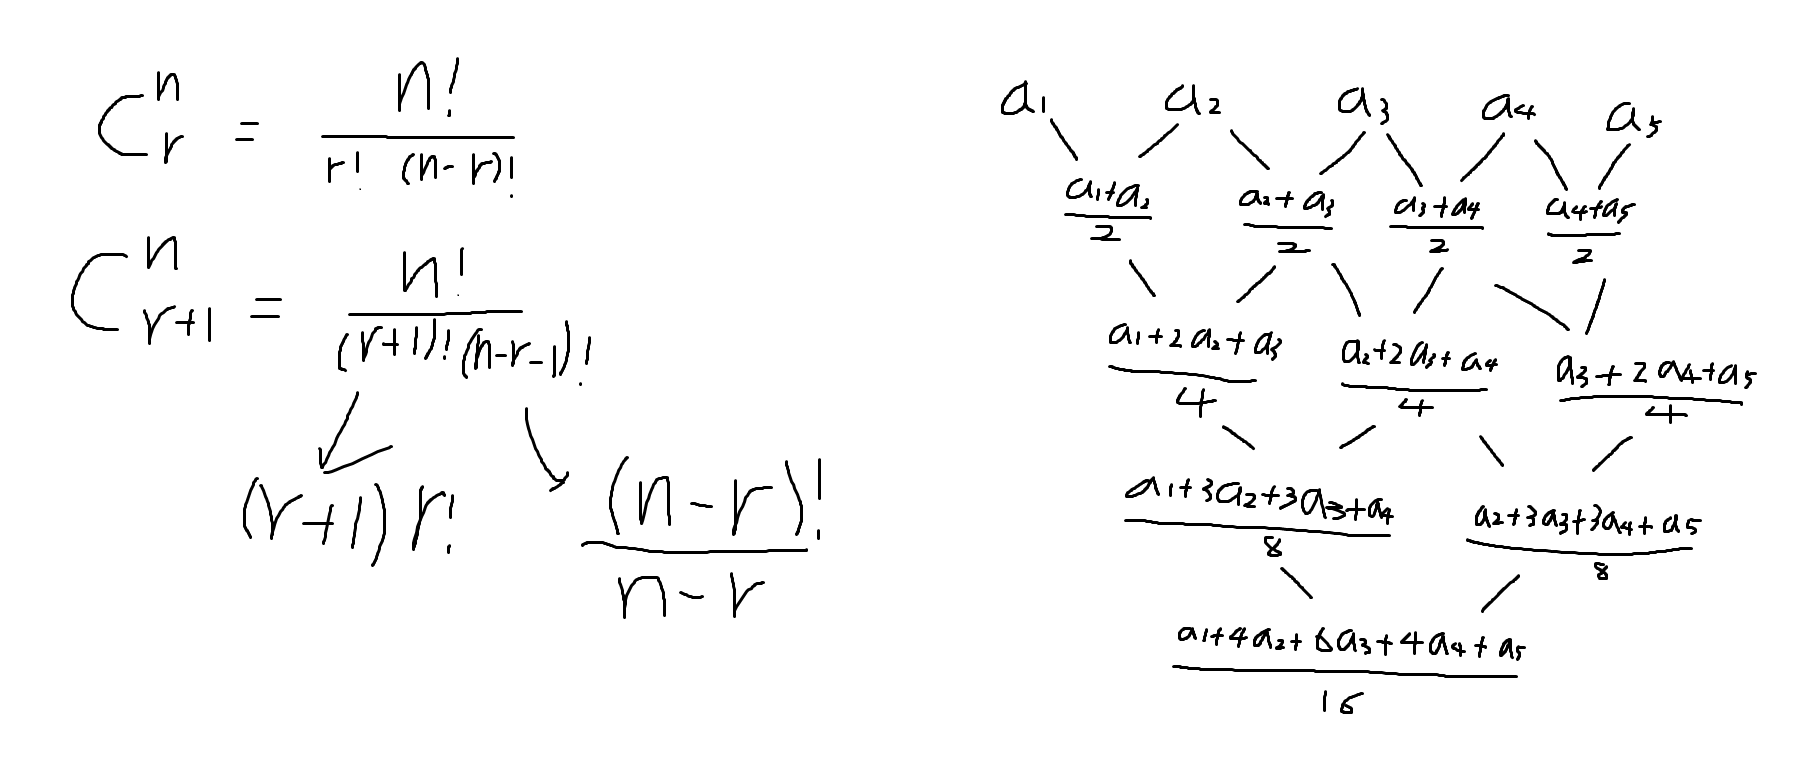 C^n_r = n! / r! (n-r)!
C^n_{r+1} = n! / (r+1)! (n-r-1)!
(r+1) r!
(n-r)! / n-r
a1 a2 a3 a4 a5
a1+a2 / 2 a2+a3 / 2 a3+a4 / 2 a4+a5 / 2
a1+2a2+a3 / 4 a2+2a3+a4 / 4 a3+2a4+a5 / 4
a1+3a2+3a3+a4 / 8 a2+3a3+3a4+a5 / 8
a1+4a2+6a3+4a4+a5 / 16